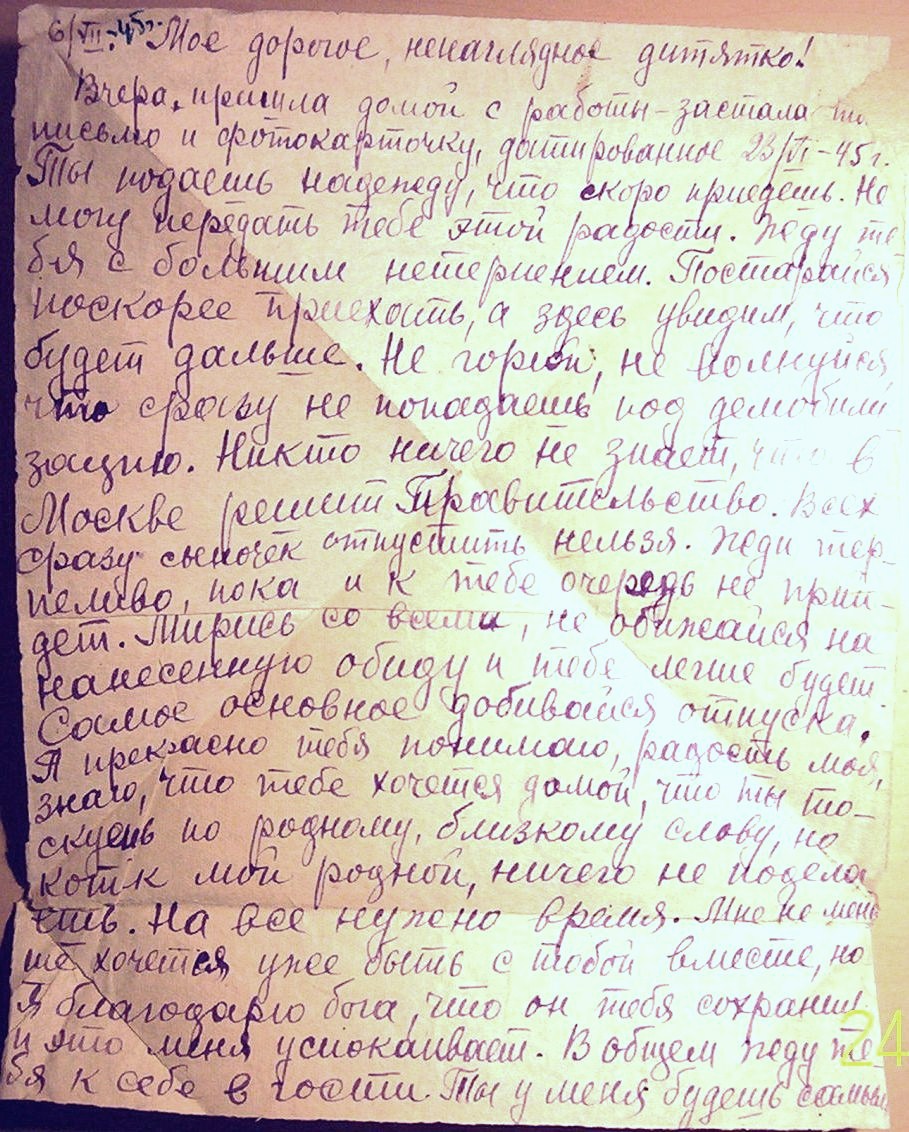 6/VII-45г. Мое дорогое, ненаглядное дитятко!
Вчера пришла домой с работы - застала
письмо и фотокарточку, датированное 23/VI-45 г.
Ты подаешь надежду, что скоро приедешь. Не
могу передать тебе этой радости. Жду те
бя с большим нетерпением. Постарайся
поскорее приехать, а здесь увидим, что
будет дальше. Не горюй, не волнуйся,
что сразу не попадаешь под демобили
зацию. Никто ничего не знает, что в
Москве решит Правительство. Всех
сразу сыночек отпустить нельзя. Жди тер-
пеливо, пока и к тебе очередь не прий-
дет. Мирись со всеми, не обижайся на
нанесенную обиду и тебе легче будет
Самое основное добивайся отпуска.
Я прекрасно тебя понимаю, радость моя,
знаю, что тебе хочется домой, что ты то-
скуешь по родному, близкому слову, но
котик мой родной, ничего не подела
ешь. На все нужно время. Мне не мень
ше хочется уже быть с тобой вместе, но
я благодарю бога, что он тебя сохранил
и это меня успокаивает. В общем жду те
бя к себе в гости. Ты у меня будешь самым
24